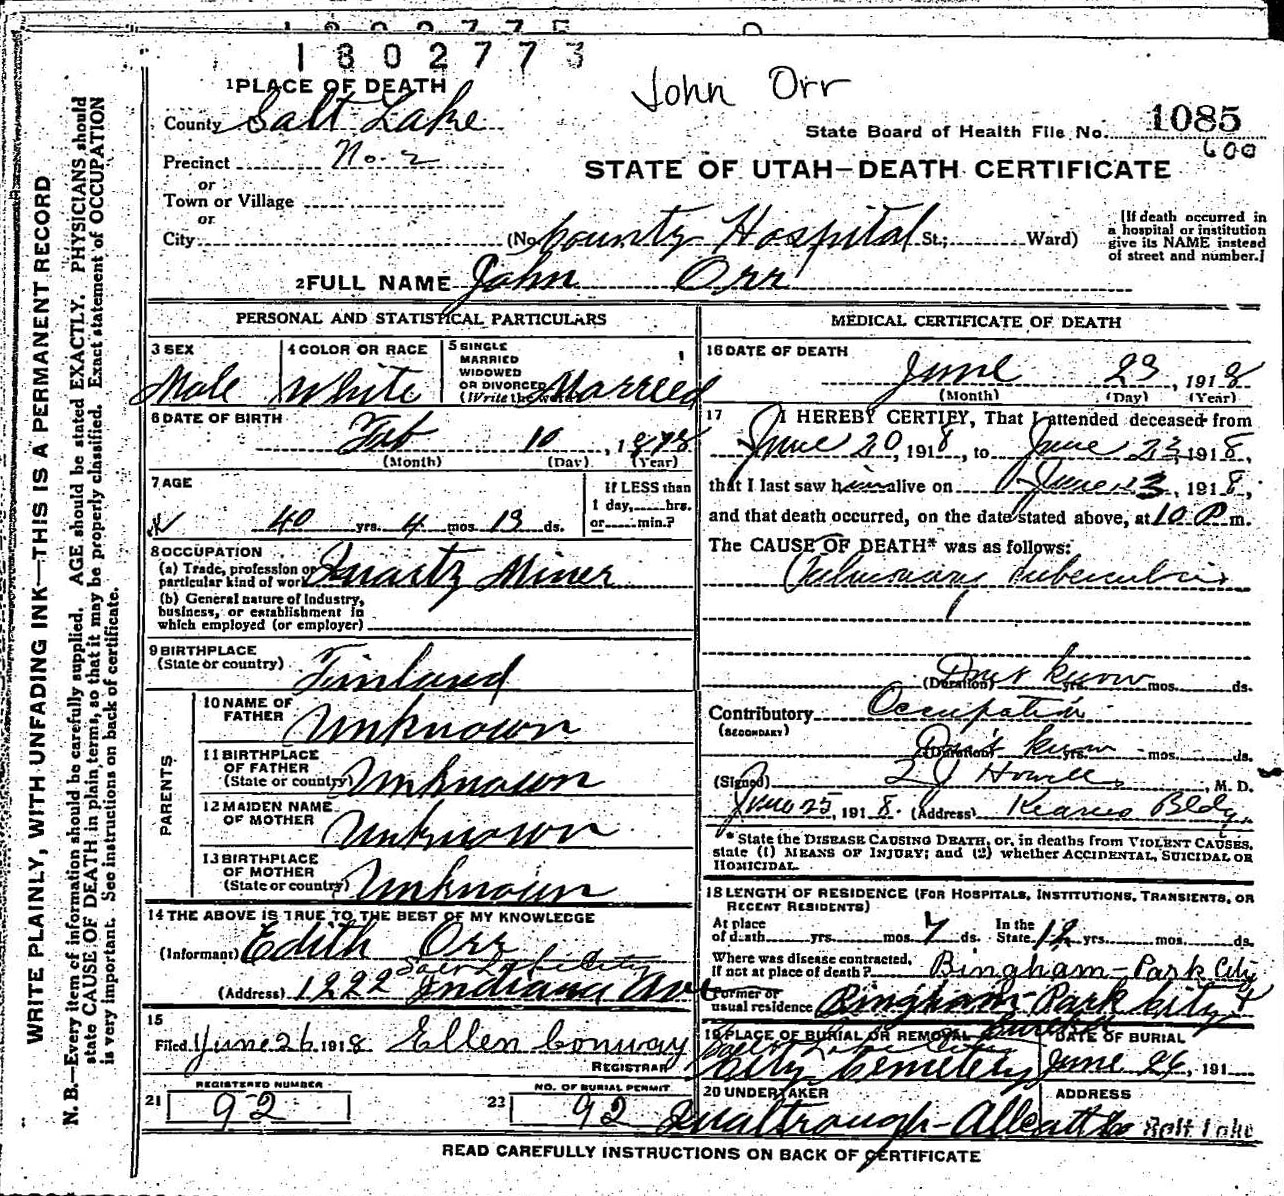 1802773
John Orr
1 PLACE OF DEATH
County Salt Lake
State Board of Health File No. 1085
600
Precinct No. 2
STATE OF UTAH—DEATH CERTIFICATE
or
Town or Village
or
City (No. County Hospital St.; Ward)
[If death occurred in
a hospital or institution
give its NAME instead
of street and number.]
2 FULL NAME John Orr
PERSONAL AND STATISTICAL PARTICULARS
3 SEX
Male
4 COLOR OR RACE
White
5 SINGLE
MARRIED
WIDOWED
OR DIVORCED
(Write the word) Married
6 DATE OF BIRTH
Feb 10, 1878
(Month) (Day) (Year)
7 AGE
40 yrs. 4 mos. 13 ds.
If LESS than
1 day, hrs.
or min.?
8 OCCUPATION
(a) Trade, profession or
particular kind of work Quartz Miner
(b) General nature of industry,
business, or establishment in
which employed (or employer)
9 BIRTHPLACE
(State or country) Finland
PARENTS
10 NAME OF
FATHER Unknown
11 BIRTHPLACE
OF FATHER
(State or country) Unknown
12 MAIDEN NAME
OF MOTHER Unknown
13 BIRTHPLACE
OF MOTHER
(State or country) Unknown
14 THE ABOVE IS TRUE TO THE BEST OF MY KNOWLEDGE
(Informant) Edith Orr
Salt Lake City
(Address) 1222 Indiana Ave
15
Filed June 26 1918 Ellen Conway
REGISTRAR
REGISTERED NUMBER
21 92
NO. OF BURIAL PERMIT
23 92
MEDICAL CERTIFICATE OF DEATH
16 DATE OF DEATH
June 23, 1918
(Month) (Day) (Year)
17 I HEREBY CERTIFY, That I attended deceased from
June 20, 1918, to June 23, 1918,
that I last saw him alive on June 23, 1918,
and that death occurred, on the date stated above, at 10 P m.
The CAUSE OF DEATH* was as follows:
Pulmonary Tuberculosis
Don't know
(Duration) yrs. mos. ds.
Contributory Occupation
(SECONDARY)
Don't know
(Duration) mos. ds.
(Signed) Howells, M. D.
June 25, 1918. (Address) Kearns Bldg.
*State the DISEASE CAUSING DEATH, or, in deaths from VIOLENT CAUSES,
state (1) MEANS OF INJURY; and (2) whether ACCIDENTAL, SUICIDAL OR
HOMICIDAL.
18 LENGTH OF RESIDENCE (FOR HOSPITALS, INSTITUTIONS, TRANSIENTS, OR
RECENT RESIDENTS)
At place
of death yrs. mos. 7 ds. In the
State 12 yrs. mos. ds.
Where was disease contracted,
if not at place of death? Bingham-Park City
Former or
usual residence Bingham-Park City &
Eureka
19 PLACE OF BURIAL OR REMOVAL
Salt Lake City
City Cemetery
DATE OF BURIAL
June 26, 191
20 UNDERTAKER
ADDRESS
Salt Lake
READ CAREFULLY INSTRUCTIONS ON BACK OF CERTIFICATE
WRITE PLAINLY, WITH UNFADING INK—THIS IS A PERMANENT RECORD
N. B.—Every item of information should be carefully supplied. AGE should be stated EXACTLY. PHYSICIANS should
state CAUSE OF DEATH in plain terms, so that it may be properly classified. Exact statement of OCCUPATION
is very important. See instructions on back of certificate.